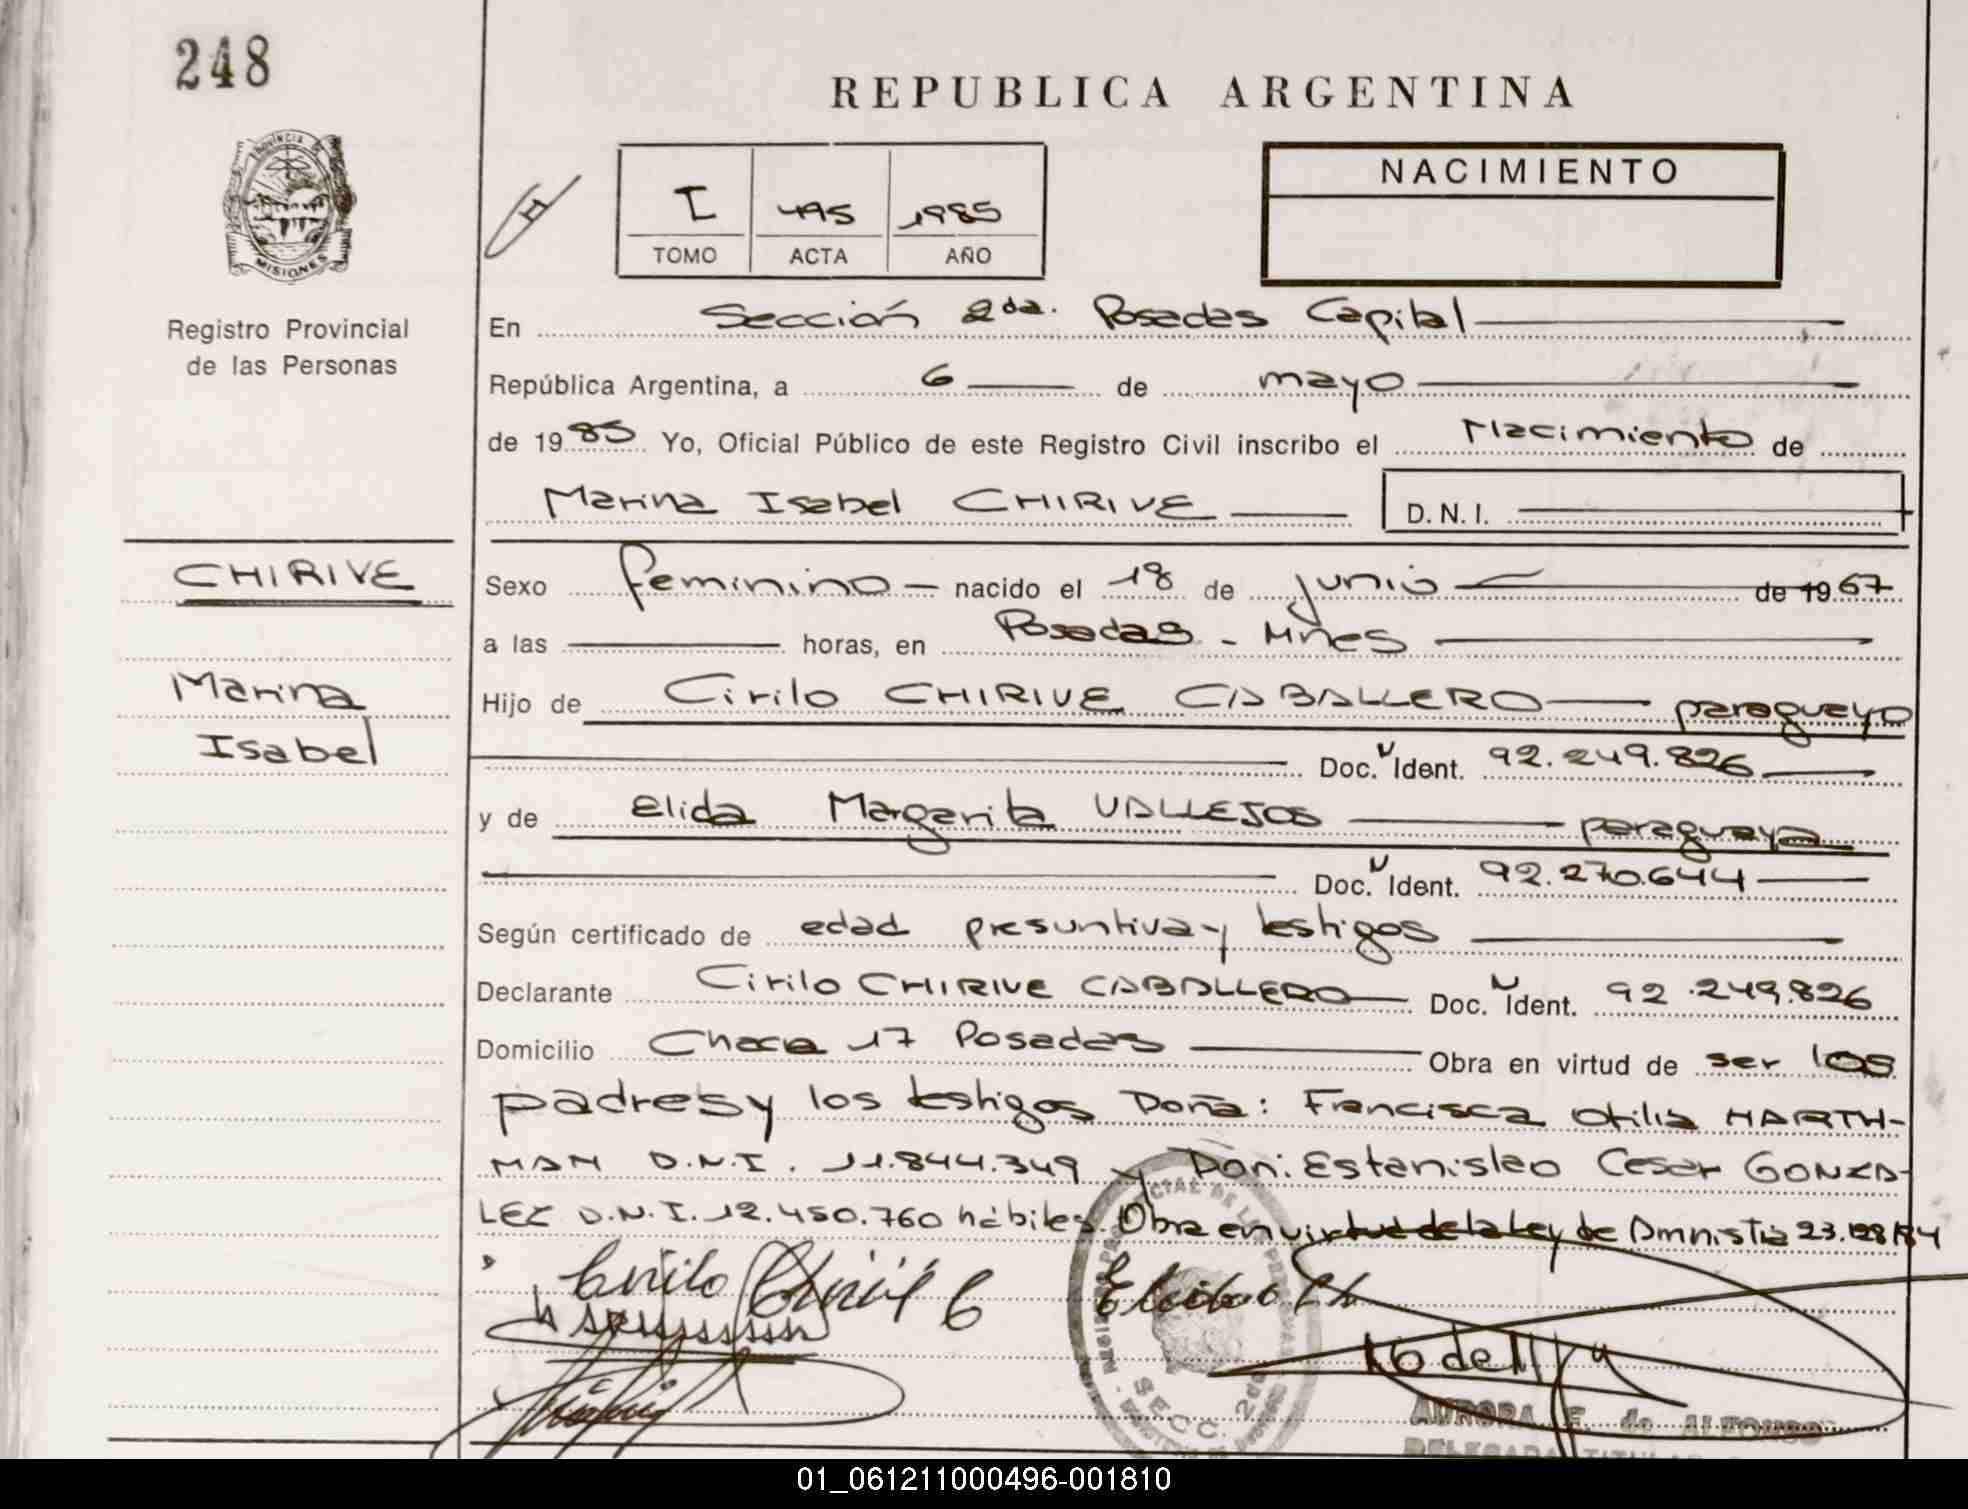 248
REPUBLICA ARGENTINA
PROVINCIA DE
MISIONES
Registro Provincial
de las Personas
I 495 1985
TOMO ACTA AÑO
NACIMIENTO
En Sección 2da. Posadas Capital
República Argentina, a 6 de mayo
de 1985 Yo, Oficial Público de este Registro Civil inscribo el Nacimiento de
Marina Isabel CHIRIVE D.N.I.
CHIRIVE
Marina
Isabel
Sexo femenino nacido el 18 de junio de 1967
a las horas, en Posadas - Mnes
Hijo de Cirilo CHIRIVE CABALLERO paraguayo
Doc. Ident. 92.249.826
y de Elida Margarita VALLEJOS paraguaya
Doc. Ident. 92.270.644
Según certificado de edad presuntiva y testigos
Declarante Cirilo CHIRIVE CABALLERO Doc. Ident. 92.249.826
Domicilio Chacra 17 Posadas Obra en virtud de ser los
padres y los testigos Doña: Francisca Otilia HARTH-
MAN D.N.I. 11.844.349 y Don: Estanislao Cesar GONZA-
LEZ D.N.I. 12.450.760 hábiles. Obra en virtud de la Ley de Amnistia 23.128/84
Cirilo Chirivé C
SECC. 2da
AURORA F. de ALFONSO
DELEGADA TITULAR
01_061211000496-001810